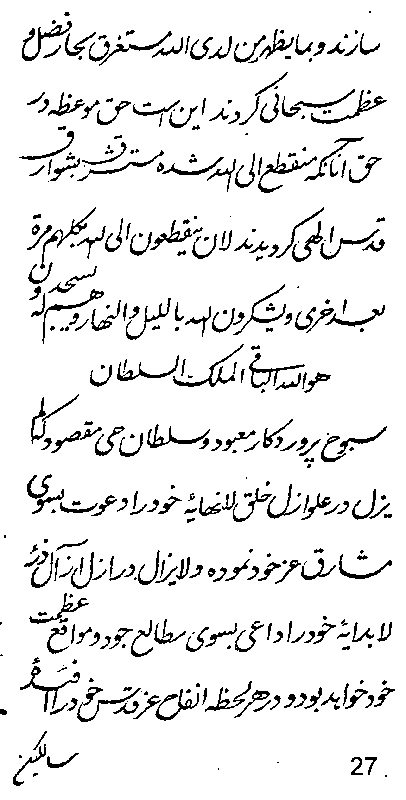 سازند و بما یظهر من لدی الله مستغرق بحار فضل و
عظمت سبحانی گردند این است حق موعظه در
حق آنانکه منقطع الی الله شده مستشرق بشوارق
قدس الهی گردیدند لان ینقطعون الی الله بکلهم مرة
بعد اخری و یشکرون الله باللیل و النهار و هم له یسجدون
هو الله الباقی الملک السلطان
سبوح پروردگار معبود و سلطان حی مقصود کلما
یزل در علو ازل خلق لانهایهٔ خود را دعوت بسوی
مشارق عز خود نموده و لایزال در ازل آزال ذرء
لابدایهٔ خود را داعی بسوی مطالع جود و مواقع عظمت
خود خواهد بود و در هر لحظه انفاح عز قدس خود را
سالکین
27